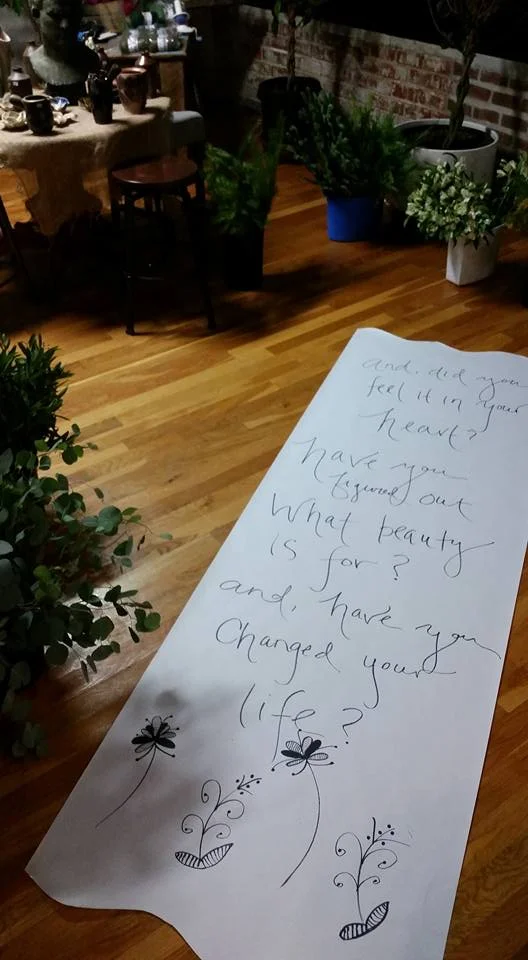 and, did you
feel it in your
heart?
have you
figured out
What beauty
is for?
and, have you
Changed your
life?